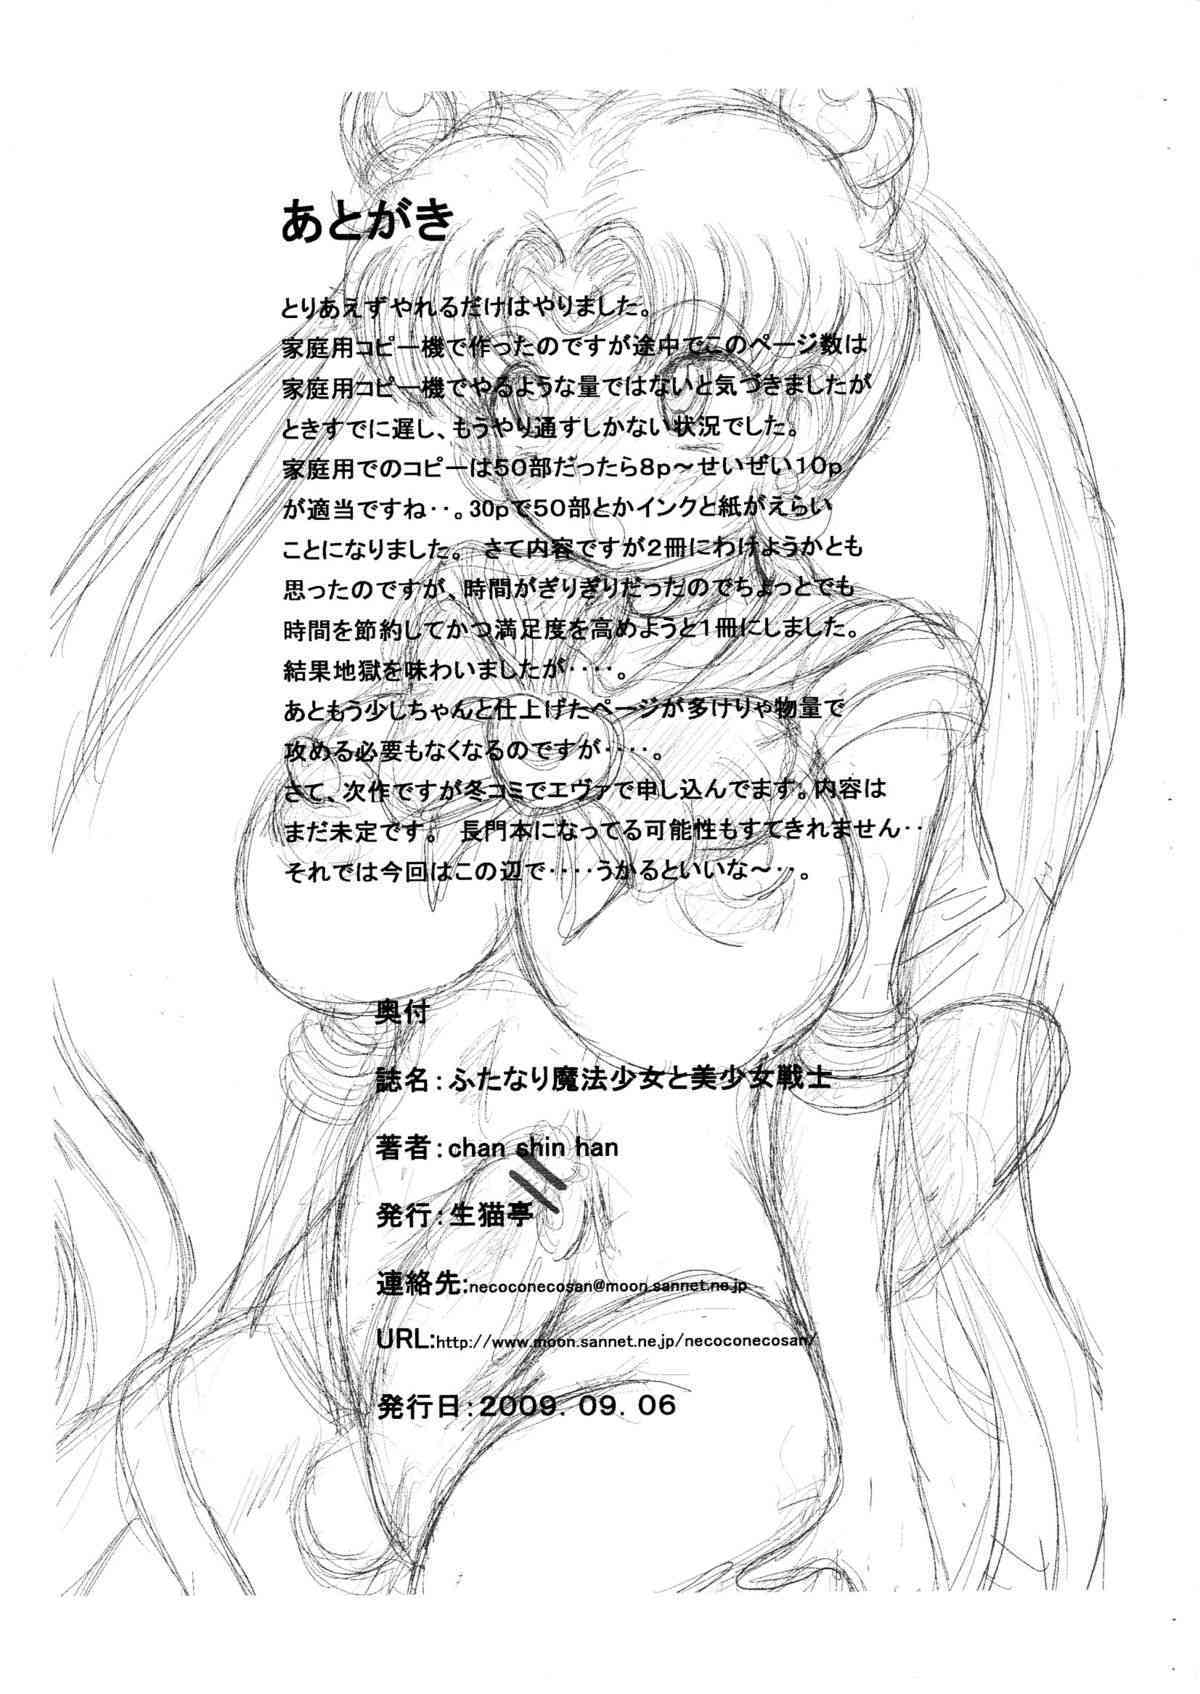 あとがき
とりあえずやれるだけはやりました。
家庭用コピー機で作ったのですが途中でこのページ数は
家庭用コピー機でやるような量ではないと気づきましたが
ときすでに遅し、もうやり通すしかない状況でした。
家庭用でのコピーは50部だったら8p～せいぜい10p
が適当ですね‥。30pで50部とかインクと紙がえらい
ことになりました。　さて内容ですが2冊にわけようかとも
思ったのですが、時間がぎりぎりだったのでちょっとでも
時間を節約してかつ満足度を高めようと1冊にしました。
結果地獄を味わいましたが‥‥。
あともう少しちゃんと仕上げたページが多けりゃ物量で
攻める必要もなくなるのですが‥‥。
さて、次作ですが冬コミでエヴァで申し込んでます。内容は
まだ未定です。　長門本になってる可能性もすてきれません‥
それでは今回はこの辺で‥‥うかるといいな～‥。
奥付
誌名：ふたなり魔法少女と美少女戦士
著者：chan shin han
発行：生猫亭
連絡先:necoconecosan@moon.sannet.ne.jp
URL:http://www.moon.sannet.ne.jp/necoconecosan/
発行日：2009．09．06